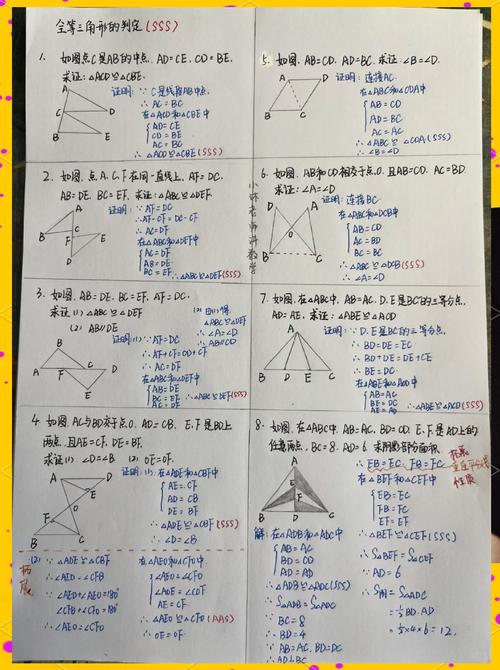 全等三角形的判定(SSS)
1. 如图点C是AB的中点. AD=CE. CD=BE.
求证:△ACD≌△CBE.
证明:∵C是线段AB中点.
∴AC=BC
在△ACD和△CBE中
AD=CE
CD=BE
AC=BC
∴△ACD≌△CBE(SSS)
A
C
D
B
E
2. 如图. 点A.C.F.在同一直线上. AF=DC.
AB=DE. BC=EF. 求证:△ABC≌△DEF
证明:∵AF=DC
∴AF-CF=DC-CF
∴AC=DF
在△ABC和△DEF中
AC=DF
AB=DE
BC=EF ∴△ABC≌△DEF(SSS)
A
B
C
F
E
D
3. 如图. AB=DE. BC=EF. AF=DC.
求证(1) △ABC≌△DEF
(2) AB∥DE
(1)证明:∵AF=DC
∴AF+CF=CD+CF
∴AC=DF
在△ABC和△DEF中
AB=DE
BC=EF
AC=DF
∴△ABC≌△DEF(SSS)
(2) 由(1)得
△ABC≌△DEF
∴∠A=∠D
∴AB∥CD
B
A
F
C
D
E
4. 如图. AC与BD交于点O. AD=CB. E.F是BD上
两点. 且AE=CF. DE=BF.
求证(1) ∠D=∠B (2) OE=OF.
证明:(1)∵在△ADE和△CBF中
AE=CF
AD=CB
DE=BF
∴△ADE≌△CBF(SSS)
∴∠D=∠B
A
D
E
O
F
B
C
拓展
(2) ∵△ADE≌△CBF
∴∠AED=∠CFB
∵∠AED+∠AEO=180°
∠CFB+∠CFO=180°
∴∠AEO=∠CFO
在△AEO和△CFO中
∠AEO=∠CFO
∠AOE=∠COF
AE=CF
∴△AEO≌△CFO(AAS)
∴OE=OF
5. 如图. AB=CD. AD=BC. 求证:∠B=∠D.
证明:连接AC.
在△ABC和△CDA中
AB=CD
AD=BC
AC=AC
∴△ABC≌△CDA(SSS)
∴∠B=∠D
A
D
B
C
6. 如图. AB和CD相交于点O. 且AB=CD. AC=BD.
求证:∠A=∠D
证明:连接BC
在△ABC和△DCB中
AB=CD
AC=BD
BC=BC
∴△ABC≌△DCB(SSS)
∴∠A=∠D
D
A
O
B
C
7. 如图. 在△ABC中. AB=AC. D.E是BC的三等分点.
AD=AE. 求证:△ABE≌△ACD
证明:∵D.E是BC的三等分点
∴BD=DE=EC
∴BD+DE=DE+CE
∴BE=DC
在△ABE和△ACD中
AB=AC
BE=DC
∴△ABE≌△ACD(SSS)
A
B
D
E
C
8. 如图. 在△ABC中. AB=AC. BD=CD. E.F是AD上的
任意两点. BC=8. AD=6. 求阴影部分面积.
解:在△ADB和△ADC中
AB=AC
BD=CD
AD=AD
∴△ADB≌△ADC(SSS)
∴S△ADB=S△ADC
∵BC=8
∴BD=4
∵AB=AC. BD=DC
∴AD⊥BC
∴EB=EC. FB=FC
在△BEF和△CEF中
EB=EC
FB=FC
EF=EF
∴△BEF≌△CEF(SSS)
∴S△BEF=S△CEF
∵AD=6
=½BD·AD
=½×4×6=12.
垂直平分线
性质
A
E
F
B
D
C